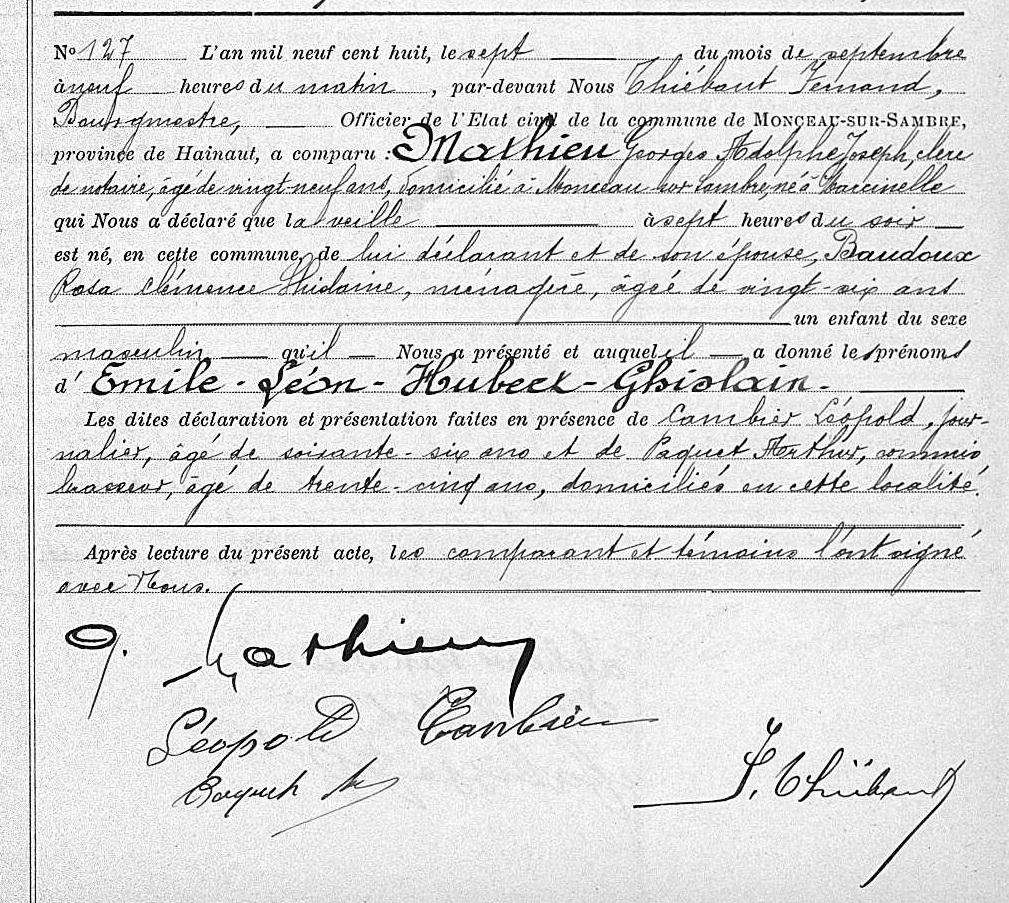 No 127 L'an mil neuf cent huit, le sept du mois de septembre
à neuf heures du matin, par-devant Nous Thiébaut Fernand,
Bourgmestre, Officier de l'Etat civil de la commune de MONCEAU-SUR-SAMBRE,
province de Hainaut, a comparu : Mathieu Georges Adolphe Joseph, clerc
de notaire, âgé de vingt-neuf ans, domicilié à Monceau sur Sambre, né à Marcinelle
qui Nous a déclaré que la veille à sept heures du soir
est né, en cette commune, de lui déclarant et de son épouse, Baudoux
Rosa Clémence Ghislaine, ménagère, âgée de vingt-six ans
un enfant du sexe
masculin qu'il Nous a présenté et auquel il a donné les prénoms
d'Emile-Léon-Hubert-Ghislain.
Les dites déclaration et présentation faites en présence de Cambier Léopold, jour-
nalier, âgé de soixante-six ans et de Paquet Arthur, commis
brasseur, âgé de trente-cinq ans, domiciliés en cette localité.
Après lecture du présent acte, les comparant et témoins l'ont signé
avec Nous.
G. Mathieu
Léopold Cambier
Paquet Ar
F. Thiébaut